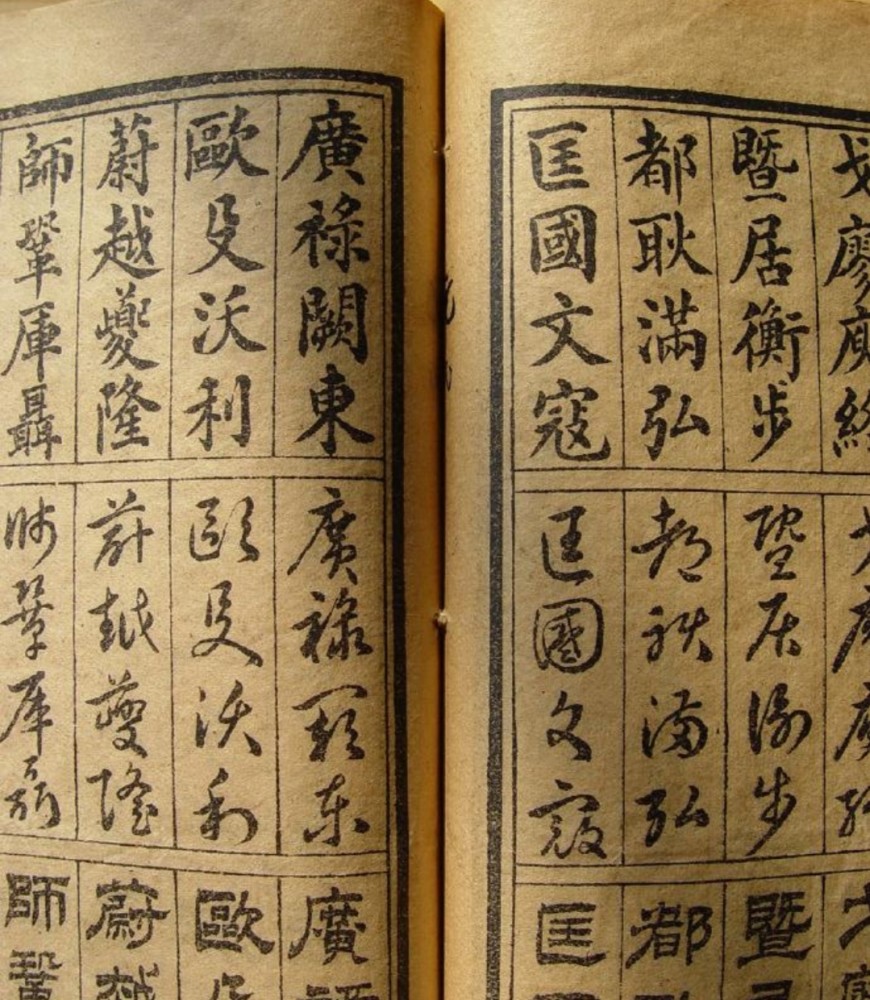 戈廖庾終
暨居衡步
都耿滿弘
匡國文寇
戈廖庾終
暨居衡步
都耿滿弘
匡國文寇
暨
都
匡
廣祿闕東
歐殳沃利
蔚越夔隆
師鞏厙聶
廣祿闕東
歐殳沃利
蔚越夔隆
師鞏厙聶
廣
歐
蔚越
師鞏